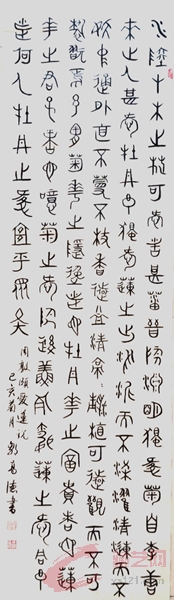 水陸艸木之花可愛者甚蕃晉陶淵明獨愛菊自李唐
來世人甚愛牡丹予獨愛蓮之出淤泥而不染濯清漣而不
妖中通外直不蔓不枝香遠益清亭亭淨植可遠觀而不可
褻翫焉予謂菊花之隱逸者也牡丹花之富貴者也蓮
花之君子者也噫菊之愛陶後鮮有聞蓮之愛同予
者何人牡丹之愛宜乎眾矣
周敦頤愛蓮說
己亥菊月